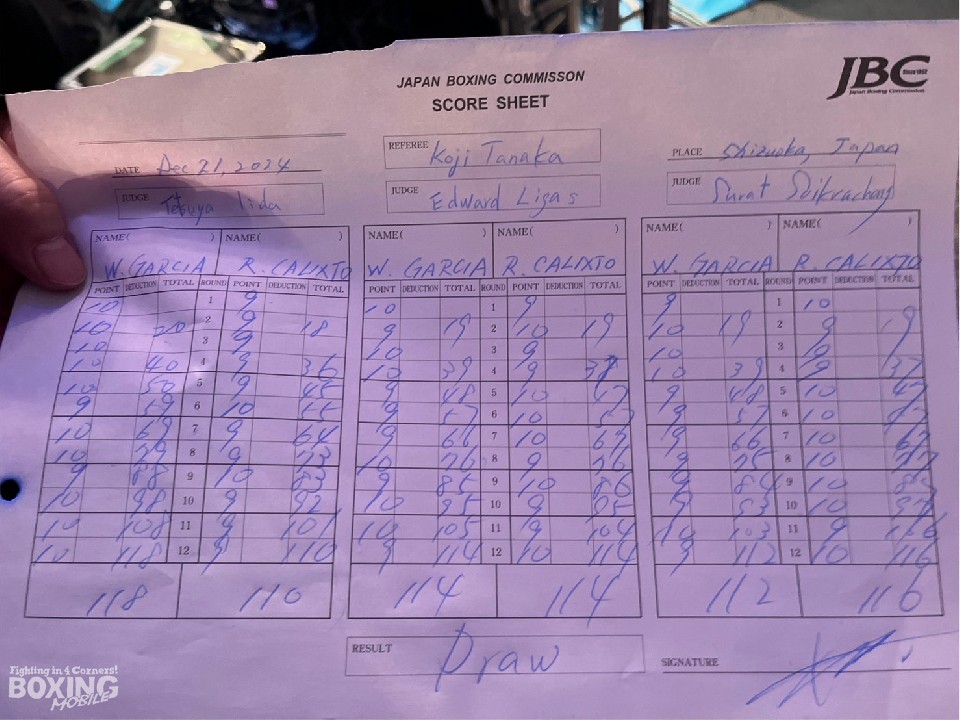 JAPAN BOXING COMMISSON
SCORE SHEET
JBC
Japan Boxing Commission
DATE Dec 21, 2024
REFEREE Koji Tanaka
PLACE Shizuoka, Japan
JUDGE Tetsuya Iida
JUDGE Edward Ligas
JUDGE Surat Soikrachang
NAME( ) NAME( ) NAME( ) NAME( ) NAME( ) NAME( )
W. GARCIA R. CALIXTO W. GARCIA R. CALIXTO W. GARCIA R. CALIXTO
POINT DEDUCTION TOTAL ROUND POINT DEDUCTION TOTAL POINT DEDUCTION TOTAL ROUND POINT DEDUCTION TOTAL POINT DEDUCTION TOTAL ROUND POINT DEDUCTION TOTAL
10 1 9 10 1 9 9 1 10
10 20 2 9 18 9 19 2 10 19 10 19 2 9 19
10 3 9 10 3 9 10 3 9
10 40 4 9 36 10 39 4 9 37 10 39 4 9 37
10 50 5 9 45 9 48 5 10 47 9 48 5 10 47
9 59 6 10 55 9 57 6 10 57 9 57 6 10 57
10 69 7 9 64 9 66 7 10 67 9 66 7 10 67
10 79 8 9 73 10 76 8 9 76 9 75 8 10 77
9 88 9 10 83 9 85 9 10 86 9 84 9 10 87
10 98 10 9 92 10 95 10 9 95 9 93 10 10 97
10 108 11 9 101 10 105 11 9 104 10 103 11 9 106
10 118 12 9 110 9 114 12 10 114 9 112 12 10 116
118 110 114 114 112 116
RESULT Draw
SIGNATURE
Fighting in 4 Corners!
BOXING
MOBILE